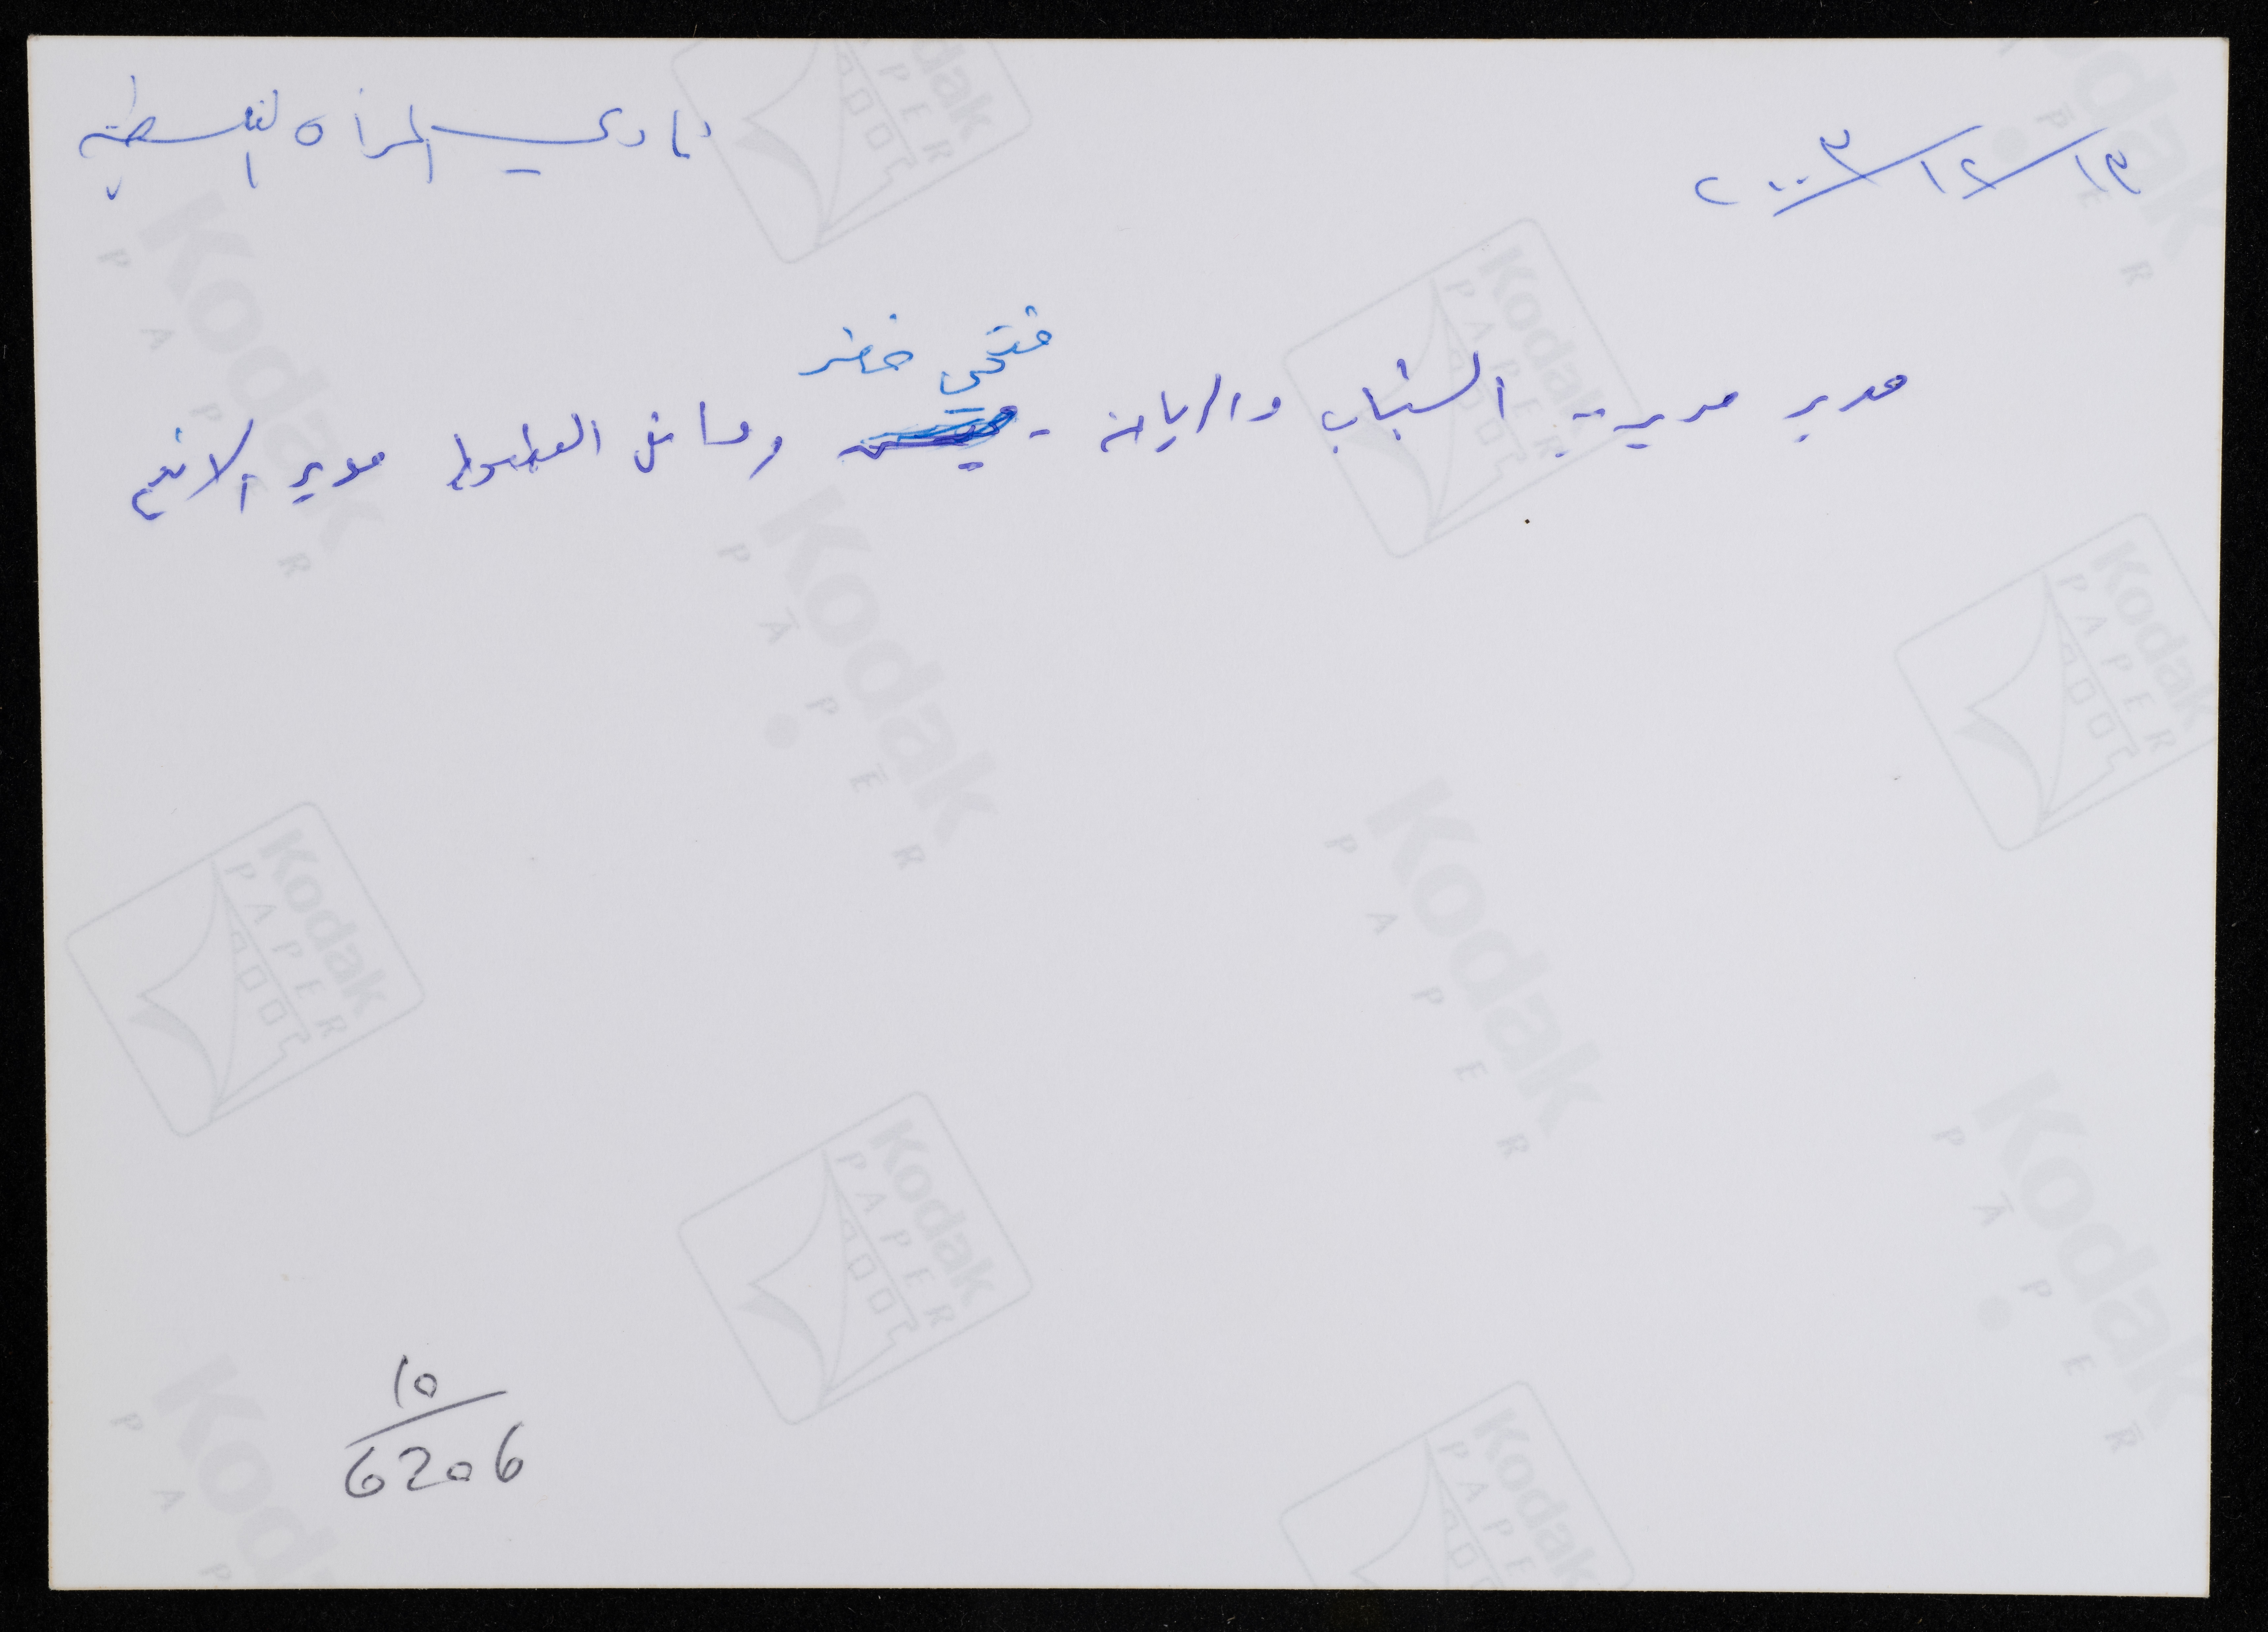 ١٣/١٢/٢٠٠٣
نادي المرأة الفلسطينية
فتحي خضر
مدير مديرية الشباب والرياضة - وفائق الططوط مدير الاندية
10
6206
Kodak
PAPER